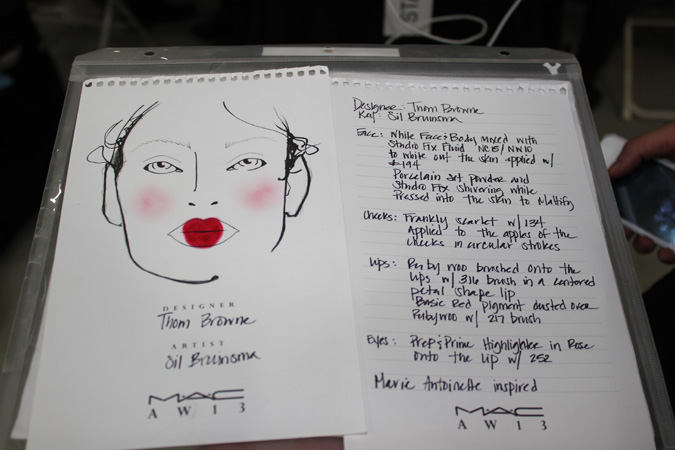 DESIGNER
Thom Browne
ARTIST
Sil Bruinsma
MAC
AW13
Designer: Thom Browne
Key: Sil Bruinsma
Face: While Face & Body mixed with
Studio Fix Fluid NC15/NW10
to white out the skin applied w/
#194
Porcelain set powder and
Studio Fix Shivering while
Pressed into the skin to Mattify
Cheeks: Frankly scarlet w/ 134
Applied to the apples of the
cheeks in circular strokes
Lips: Ruby woo brushed onto the
lips w/ 316 brush in a centered
petal shape lip
Basic Red pigment dusted over
Rubywoo w/ 217 brush
Eyes: Prep & Prime Highlighter in Rose
onto the lip w/ 252
Marie Antoinette inspired
MAC
AW13